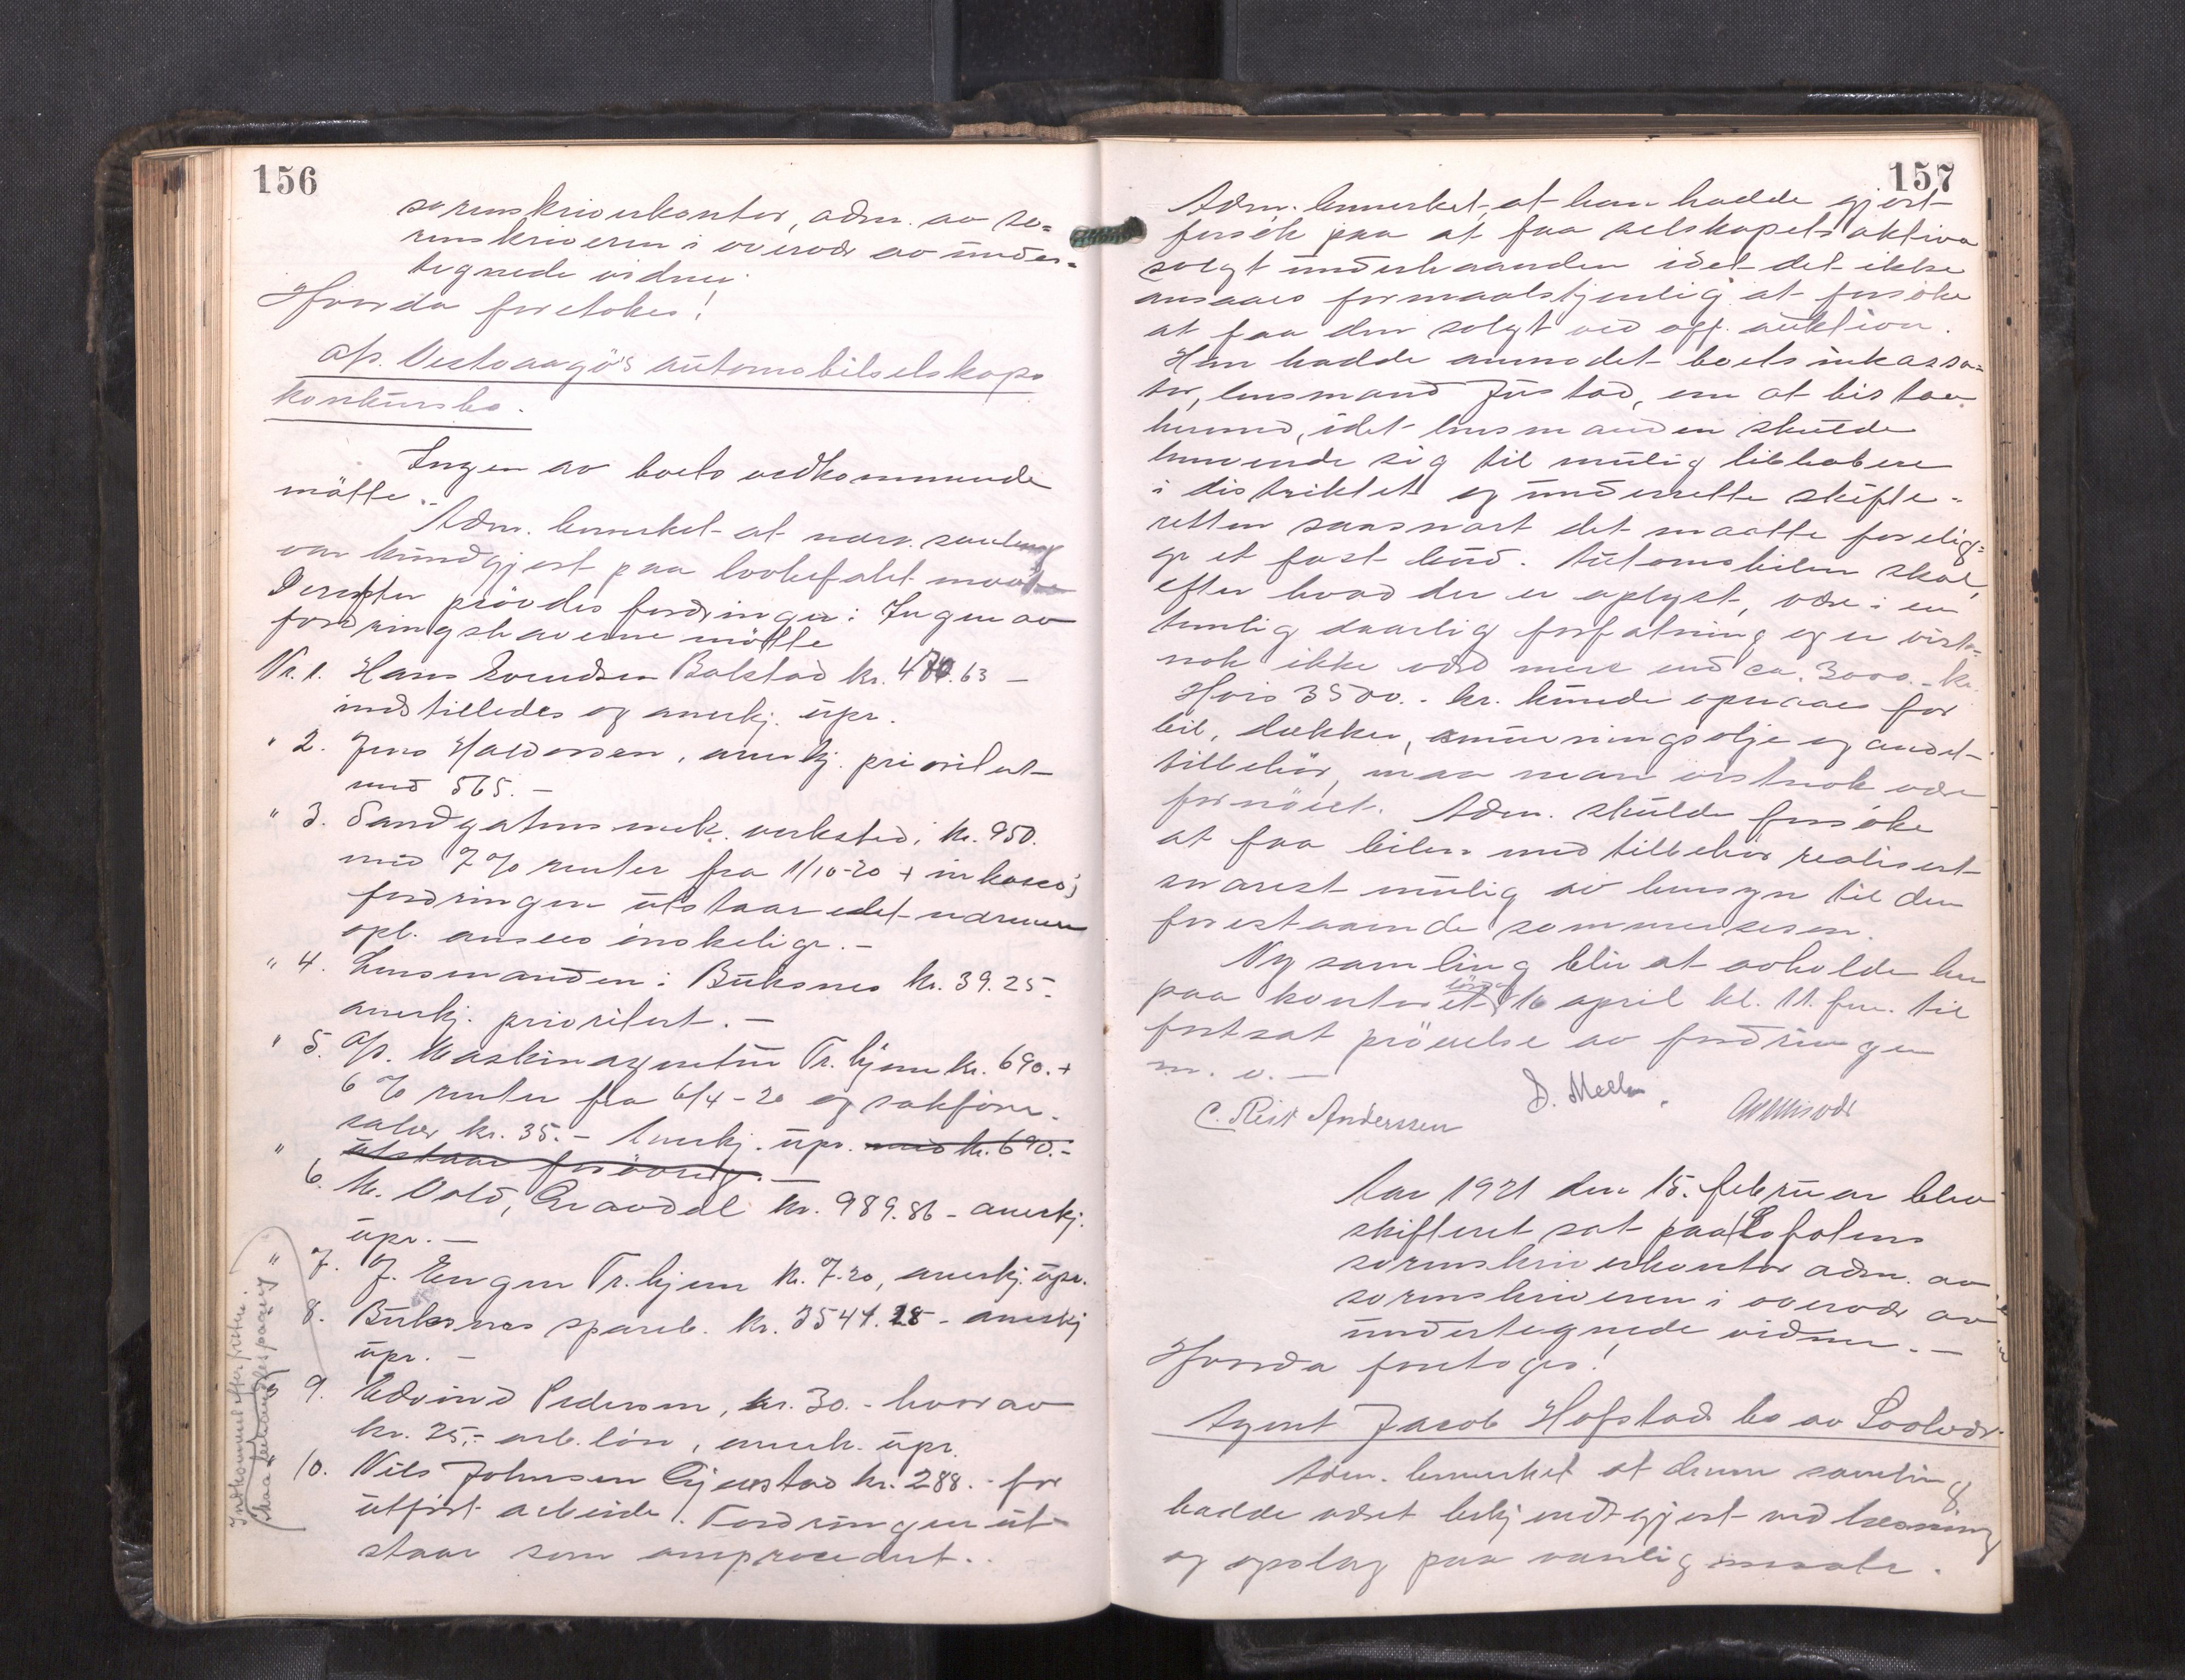 156
sorenskriverkontor, adm. av so=
renskriveren i overvær av under=
tegnede vidner.
Hvorda foretokes!
A/s. Vestvaagö's automobilselskaps
konkursbo.
Ingen av boets vedkommende
mötte.
Adm. bemerket at nærv. samling
var kundgjort paa lovbefalet maate
Derefter prövdes fordringer: Ingen av
fordringshaverne mötte
Nr. 1. Hans Svendsen Balstad kr. .63 -
indstilledes og anerkj. upr.
" 2. Jens Haldorsen, anerkj. prioritert
med 565. -
" 3. Sandgatens mek. verksted, kr. 950.
med 7 % renter fra 1/10-20 + inkasso;
fordringen utstaar idet nærmere
opl. ansees önskelige. -
" 4. Lensmanden i Buksnes kr. 39.25.
anerkj. prioritert. -
" 5. A/s. Maskinagentur Tr.hjem kr. 690. +
6 % renter fra 6/4-20 og sakförer-
salær kr. 35. - Anerkj. upr. med kr. 690. -
" utstaar forövrig. -
6. M. Vold, Gravdal kr. 989.86 - anerkj.
upr. -
" 7. J. Engen Tr.hjem kr. 7.20, anerkj. upr.
8. Buksnes spareb. kr. 3541.25 - anerkj
upr. -
" 9. Edvind Pedersen, kr. 30. - hvorav
kr. 25,- arb.lön, anerk. upr.
10. Nils Johnsen Gjerstad kr. 288. - for
utfört arbeide. Fordringen ut-
staar som omprocedert.
Indkommet efter fristen.
skaa behandles paany
157
Adm. bemerket, at han hadde gjort
forsök paa at faa selskapets aktiva
solgt underhaanden idet det ikke
ansaaes formaalstjenlig at forsöke
at faa den solgt ved off. auktion.
Han hadde anmodet boets inkassa=
tor, lensmand Justad, om at bistaa
hermed, idet lensmanden skulde
henvende sig til mulig likhabere
i distriktet og underrette skifte-
retten saasnart det maatte forelig=
ge et fast bud. Automobilen skal,
efter hvad der er oplyst, være i en
temlig daarlig forfatning og er vist=
nok ikke værd mere end ca. 3000.- kr.
Hvis 3500.- kr. kunde opnaaes for
bil, dækker, smurningsolje og andet
tilbehör, maa man vistnok være
fornöiet. Adm. skulde forsöke
at faa bilen med tilbehör realisert
snarest mulig av hensyn til den
forestaaende sommersesong.
Ny samling blir at avholde her
paa kontoret lörd. 16 april kl. 11. fm. til
fortsat prövelse av fordringer
m. v. -
C. Reist Anderssen D. Mellem.
Aar 1921 den 15. februar blev
skifteret sat paa Lofotens
sorenskriverkontor adm. av
sorenskriveren i overvær av
undertegnede vidner. -
Hvorda foretoges!
Agent Jacob Hofstads bo av Svolvær.
Adm. bemerket at denne samling
hadde været bekjendtgjort ved læsning
og opslag paa vanlig maate.